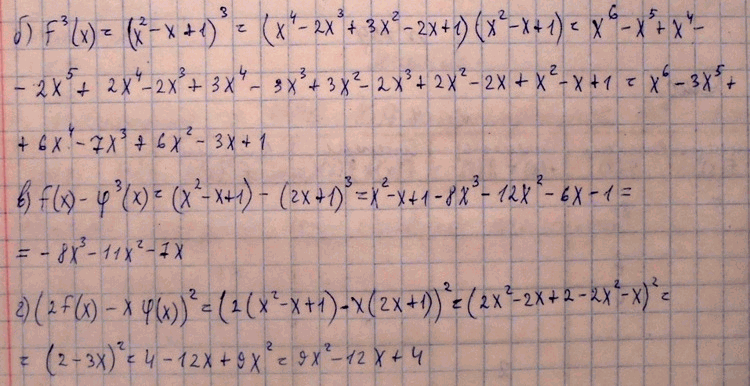 б) f³(x) = (x² - x + 1)³ = (x⁴ - 2x³ + 3x² - 2x + 1)(x² - x + 1) = x⁶ - x⁵ + x⁴ -
- 2x⁵ + 2x⁴ - 2x³ + 3x⁴ - 3x³ + 3x² - 2x³ + 2x² - 2x + x² - x + 1 = x⁶ - 3x⁵ +
+ 6x⁴ - 7x³ + 6x² - 3x + 1
в) f(x) - φ³(x) = (x² - x + 1) - (2x + 1)³ = x² - x + 1 - 8x³ - 12x² - 6x - 1 =
= - 8x³ - 11x² - 7x
г) (2f(x) - x φ(x))² = (2(x² - x + 1) - x(2x + 1))² = (2x² - 2x + 2 - 2x² - x)² =
= (2 - 3x)² = 4 - 12x + 9x² = 9x² - 12x + 4